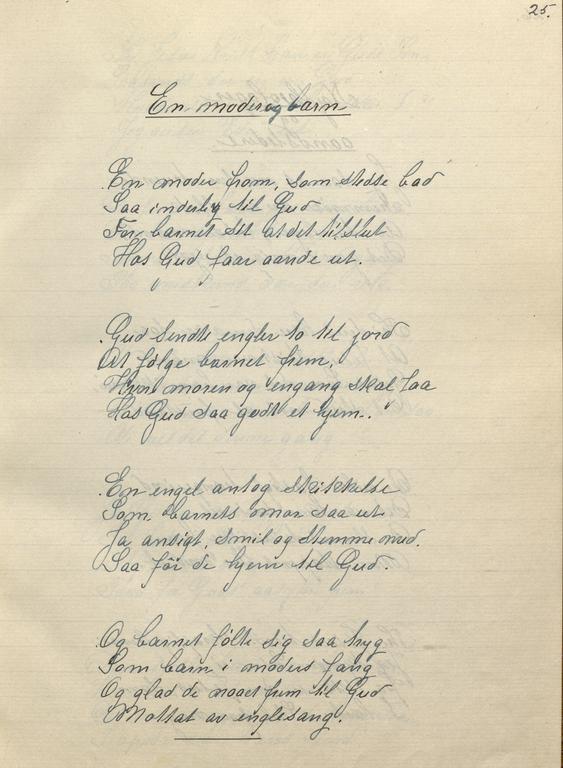 25.
En moder og barn
En moder from, som stedse bad
Saa inderlig til Gud
For barnet sit at det tilslut
Hos Gud faar aande ut.
Gud sendte engler to til jord
At følge barnet frem,
Hvor moren og engang skal faa
Hos Gud saa godt et hjem.
En engel antog skikkelse
Som barnets mor saa ut
Ja ansigt, smil og stemme med.
Saa før de hjem til Gud.
Og barnet følte sig saa tryg
Som barn i moders fang
Og glad de naaet frem til Gud
Mottat av englesang.